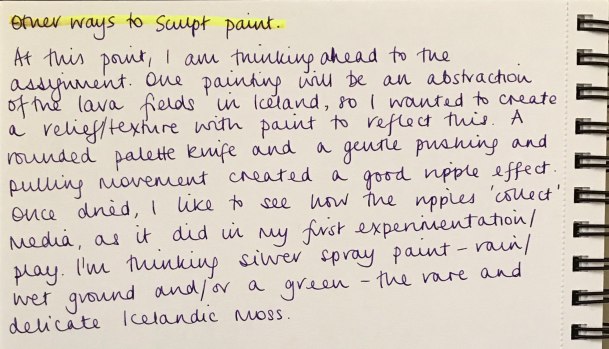 Other ways to sculpt paint.
At this point, I am thinking ahead to the
assignment. One painting will be an abstraction
of the lava fields in Iceland, so I wanted to create
a relief/texture with paint to reflect this. A
rounded palette knife and a gentle pushing and
pulling movement created a good ripple effect.
Once dried, I like to see how the ripples 'collect'
media, as it did in my first experimentation/
play. I'm thinking silver spray paint - rain/
wet ground and/or a green - the rare and
delicate Icelandic moss.